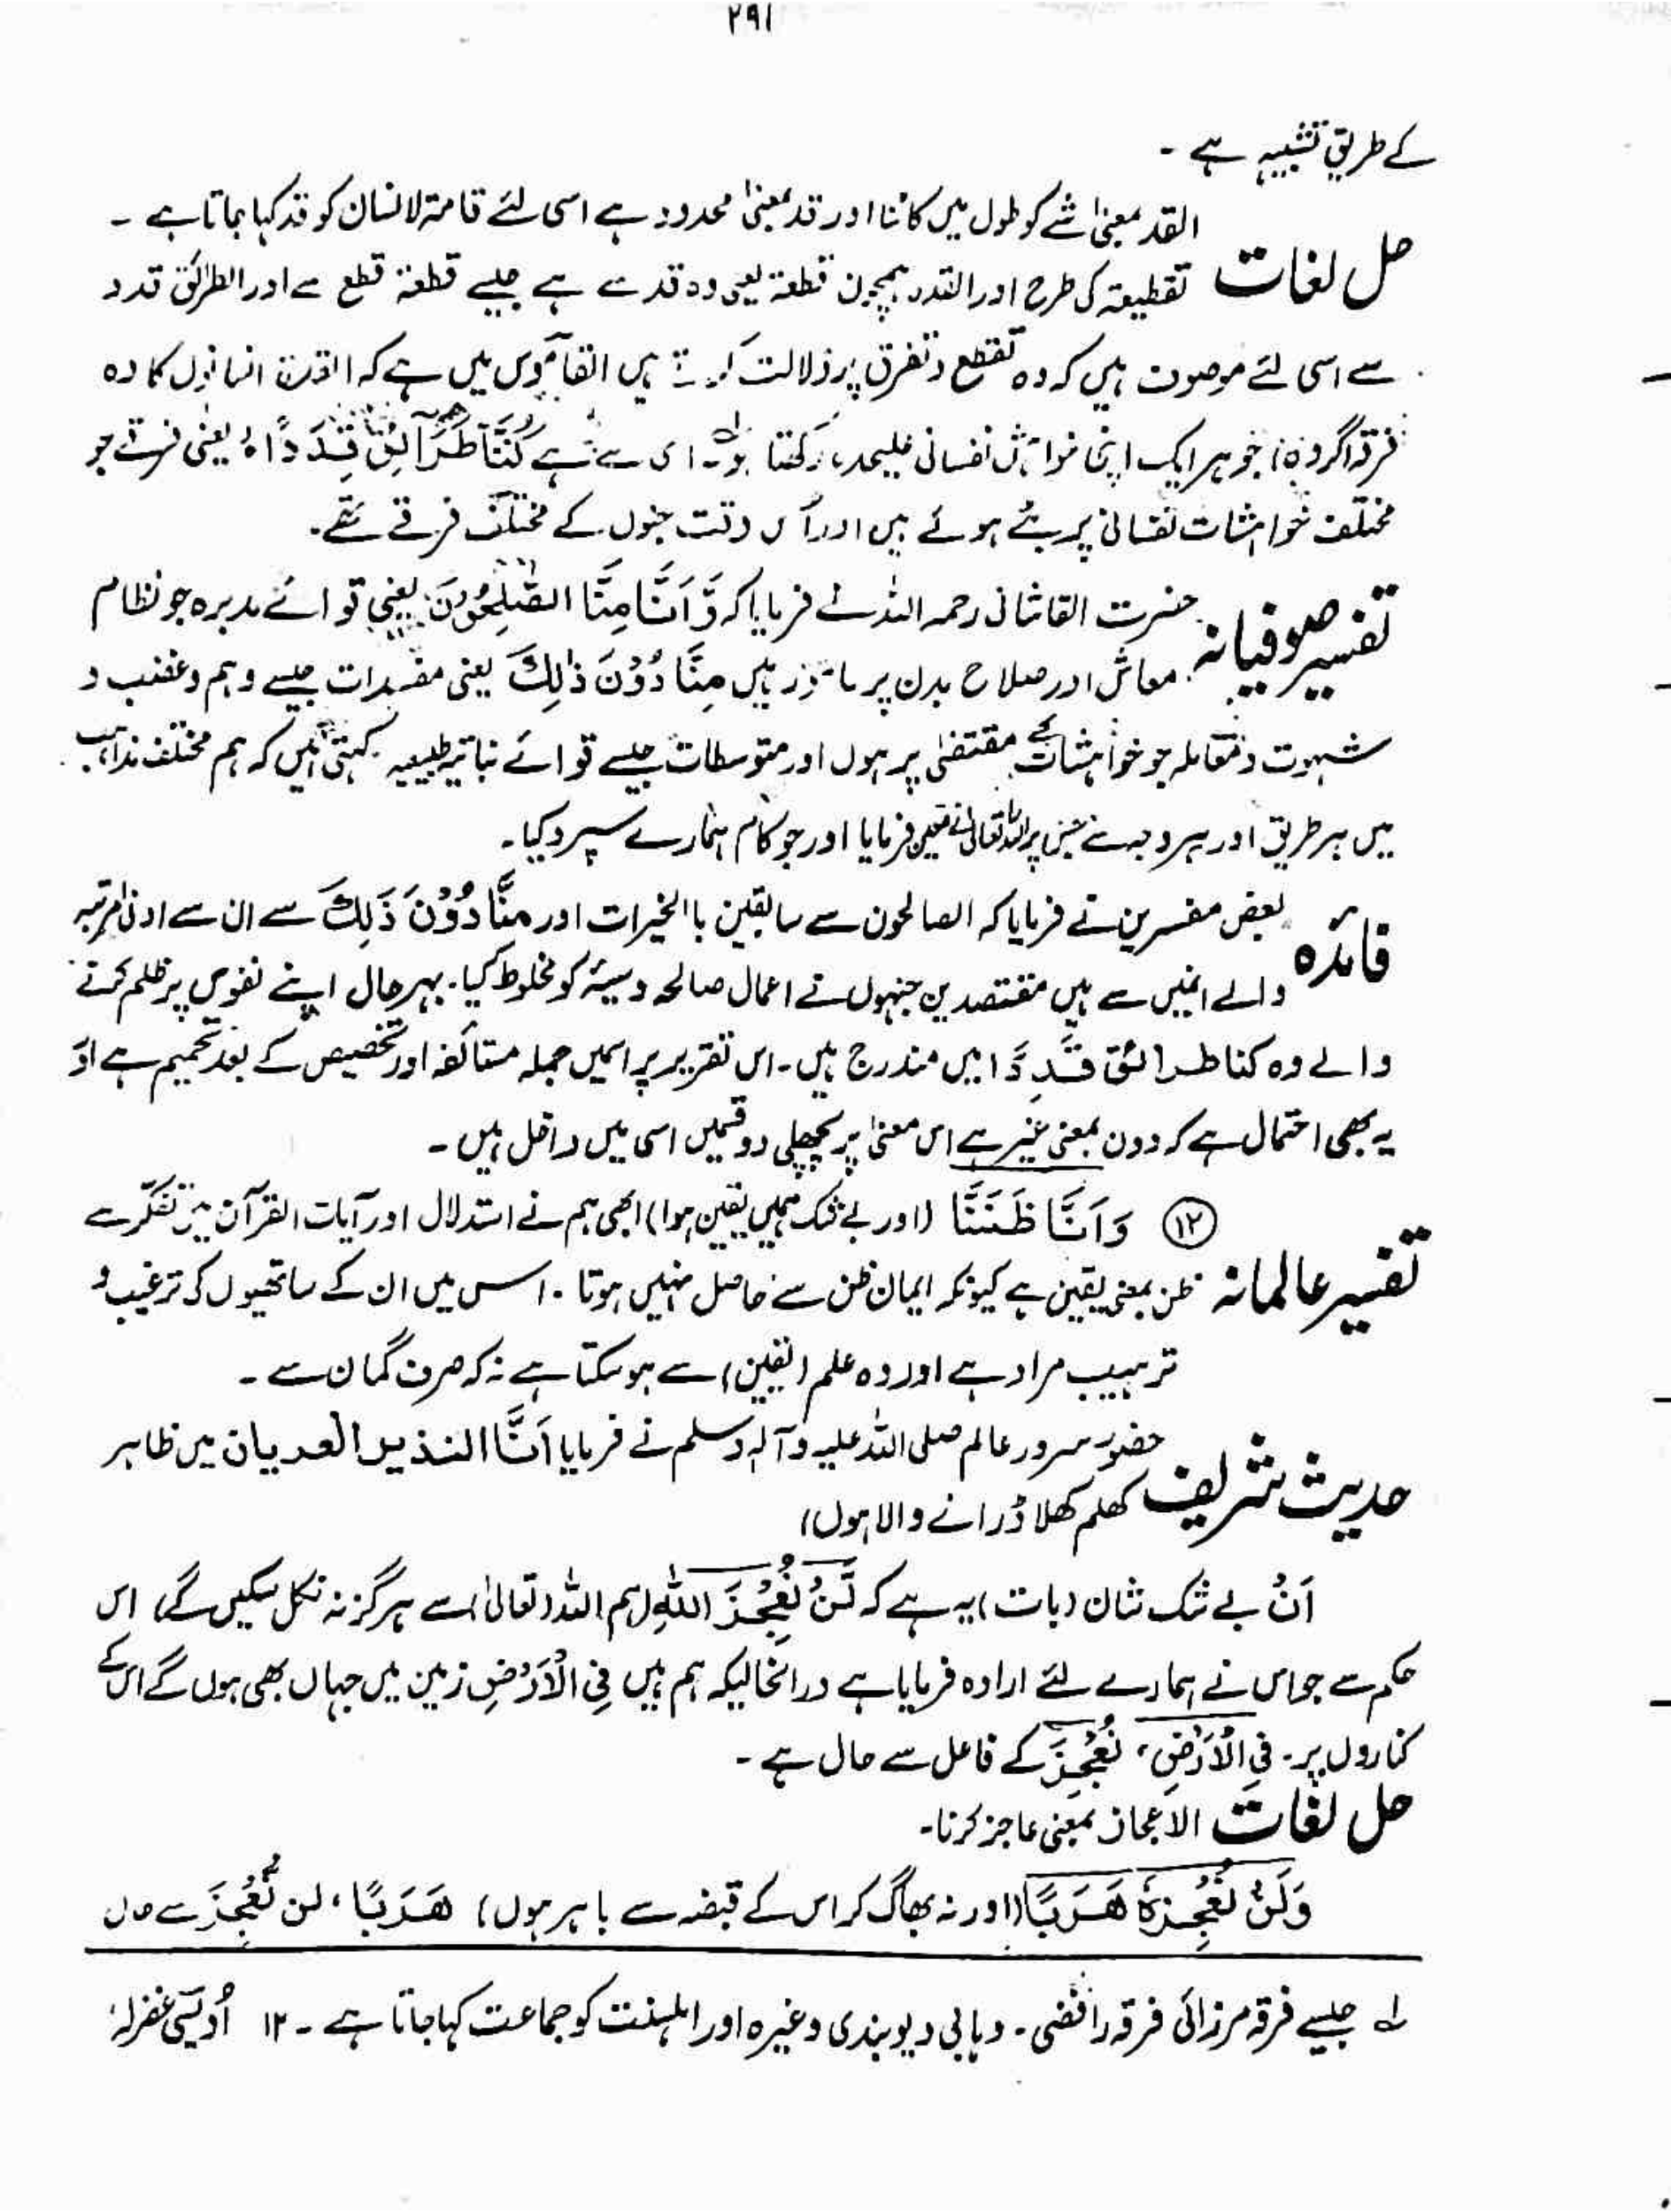 ۲۹۱
کے طریق تشبیہ ہے ۔
حل لغات القد بمعنیٰ شے کو طول میں کاٹنا اور قد بمعنیٰ محدود ہے اسی لئے قامۃ لانسان کو قد کہا جاتا ہے ۔
تقطیعۃ کی طرح اور القدد ہمچوں قطعۃ یعنی وہ قد سے ہے جیسے قطعۃ قطع سے اور الطرائق قدد
سے اسی لئے موصوت ہیں کہ وہ تقطع و تفرق پر دلالت کرتے ہیں القاموس میں ہے کہ القدۃ انسانوں کا وہ
فرقہ (گروہ) جو ہر ایک اپنی خواہش نفسانی علیحدہ رکھتا ہو۔ اسی سے ہے كُنَّا طَرَآئِقَ قِدَدًاہُ یعنی فرقے جو
مختلف خواہشات نفسانی پر بٹے ہوئے ہیں اور اُس وقت جنوں کے مختلف فرقے تھے۔
تفسیر صوفیانہ حضرت القاشانی رحمہ اللہ نے فرمایا کہ وَّاَنَّا مِنَّا الصّٰلِحُوْنَ یعنی قوائے مدبرہ جو نظام
معاش اور صلاح بدن پر مامور ہیں مِنَّا دُوْنَ ذٰلِكَ یعنی مفسدات جیسے وہم و غضب و
شہوت و معاملہ جو خواہشات کے مقتضیٰ پر ہوں اور متوسطات جیسے قوائے نباتیہ طبیعیہ کہتی ہیں کہ ہم مختلف مذاہب
میں ہر طریق اور ہر وجہ سے جس پر اللہ تعالیٰ نے معین فرمایا اور جو کام ہمارے سپرد کیا۔
فائدہ بعض مفسرین نے فرمایا کہ الصالحون سے سابقین باالخیرات اور مِنَّا دُوْنَ ذَلِكَ سے ان سے ادنیٰ مرتبہ
والے انہیں سے ہیں مقتصدین جنہوں نے اعمال صالحہ وسیئہ کو مخلوط کیا۔ بہرحال اپنے نفوس پر ظلم کرنے
والے وہ کنا طرائق قِدَدًا میں مندرج ہیں۔ اس تقریر پر اسمیں جملہ مستأنفہ اور تخصیص کے بعد تعمیم ہے اور
یہ بھی احتمال ہے کہ دون بمعنی غیر ہے اس معنیٰ پر پچھلی دو قسمیں اسی میں داخل ہیں ۔
تفسیر عالمانہ ⑫ وَاَنَّا ظَنَنَّا (اور بے شک ہمیں یقین ہوا) ابھی ہم نے استدلال اور آیات القرآن میں تفکر سے
ظن بمعنی یقین ہے کیونکہ ایمان ظن سے حاصل نہیں ہوتا ۔ اس میں ان کے ساتھیوں کی ترغیب و
ترہیب مراد ہے اور وہ علم (یقین) سے ہو سکتا ہے نہ کہ صرف گمان سے ۔
حدیث شریف حضور سرور عالم صلی اللہ علیہ وآلہ وسلم نے فرمایا اَنَّا النذیر العریان میں ظاہر
کھلم کھلا ڈرانے والا ہوں)
اَنْ بے شک شان (بات) یہ ہے کہ لَّنْ نُّعْجِزَ اللّٰهَ (ہم اللہ (تعالیٰ) سے ہرگز نہ نکل سکیں گے) اس
حکم سے جو اس نے ہمارے لئے ارادہ فرمایا ہے درانحالیکہ ہم ہیں فِی الْاَرْضِ زمین میں جہاں بھی ہوں گے اس کے
کناروں پر۔ فِی الْاَرْضِ، نُعْجِزَ کے فاعل سے حال ہے ۔
حل لغات الاعجاز بمعنی عاجز کرنا۔
وَلَنْ نُّعْجِزَہٗ هَرَبًا (اور نہ بھاگ کر اس کے قبضہ سے باہر ہوں) هَرَبًا، لن نُّعْجِزَ سے حال
لے جیسے فرقہ مرزائی فرقہ رافضی ۔ وہابی دیوبندی وغیرہ اور اہلسنت کو جماعت کہا جاتا ہے ۔ ۱۲ اُویسی غفرلہٗ